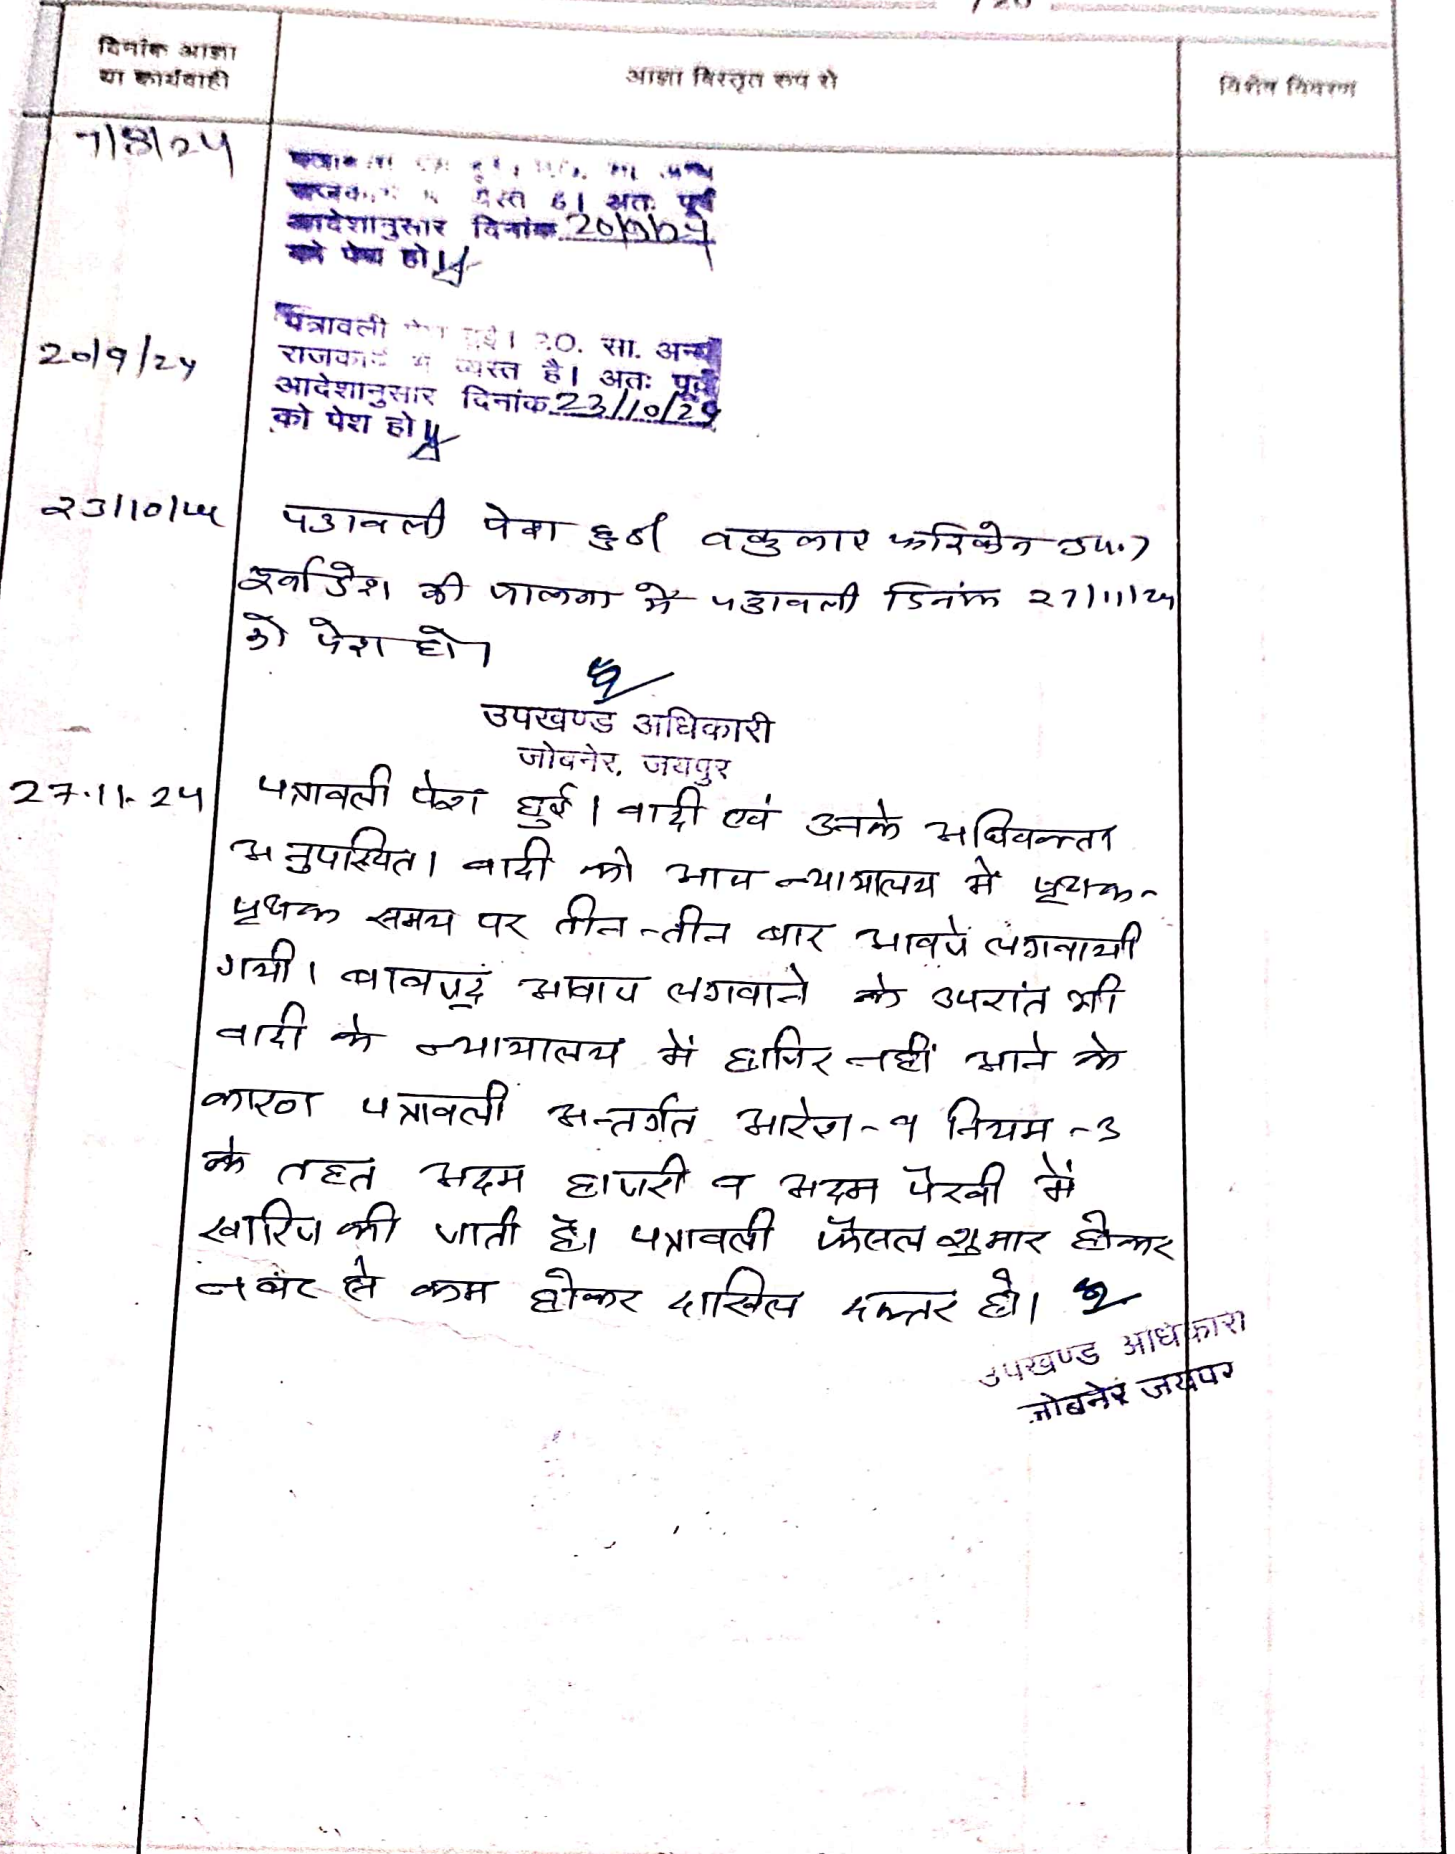 दिनांक आज्ञा
या कार्यवाही
आज्ञा विस्तृत रूप से
विशेष विवरण
7/8/24
है। अतः पूर्व
आदेशानुसार दिनांक 20/9/24
को पेश हो।
20/9/24
पत्रावली हुई। सा. अन्य
राजकार्य में व्यस्त है। अतः पूर्व
आदेशानुसार दिनांक 23/10/24
को पेश हो।
23/10/24
पत्रावली पेश हुई। वकुलाए फरिकेन उप.।
पूर्वादेश की पालना में पत्रावली दिनांक 27/11/24
को पेश हो।
उपखण्ड अधिकारी
जोबनेर, जयपुर
27.11.24
पत्रावली पेश हुई। वादी एवं उनके अधिवक्ता
अनुपस्थित। वादी को आज न्यायालय में पृथक-
पृथक समय पर तीन-तीन बार आवाजें लगवायी
गयी। बावजूद आवाज लगवाने के उपरांत भी
वादी के न्यायालय में हाजिर नहीं आने के
कारण पत्रावली अन्तर्गत आदेश-9 नियम-3
के तहत अदम हाजरी व अदम पैरवी में
खारिज की जाती है। पत्रावली फैसल शुमार होकर
नम्बर से कम होकर दाखिल दफ्तर हो।
उपखण्ड अधिकारी
जोबनेर जयपुर